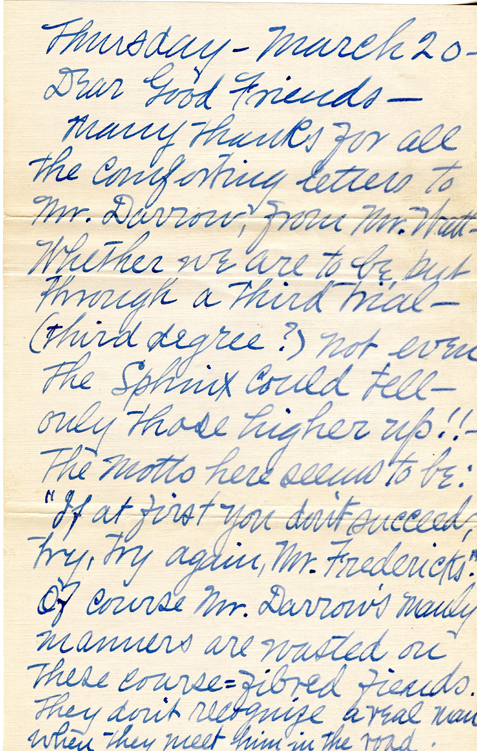 Thursday – March 20 –
Dear Good Friends –
Many thanks for all
the comforting letters to
Mr. Darrow, from Mr. Watt –
Whether we are to be put
through a third trial –
(third degree?) not even
the Sphinx could tell –
only those higher up!! –
The motto here seems to be:
"If at first you don't succeed,
try, try again, Mr. Fredericks."
Of course Mr. Darrow's manly
manners are wasted on
these course=fibred fiends.
They don't recognize a real man
when they meet him in the road.